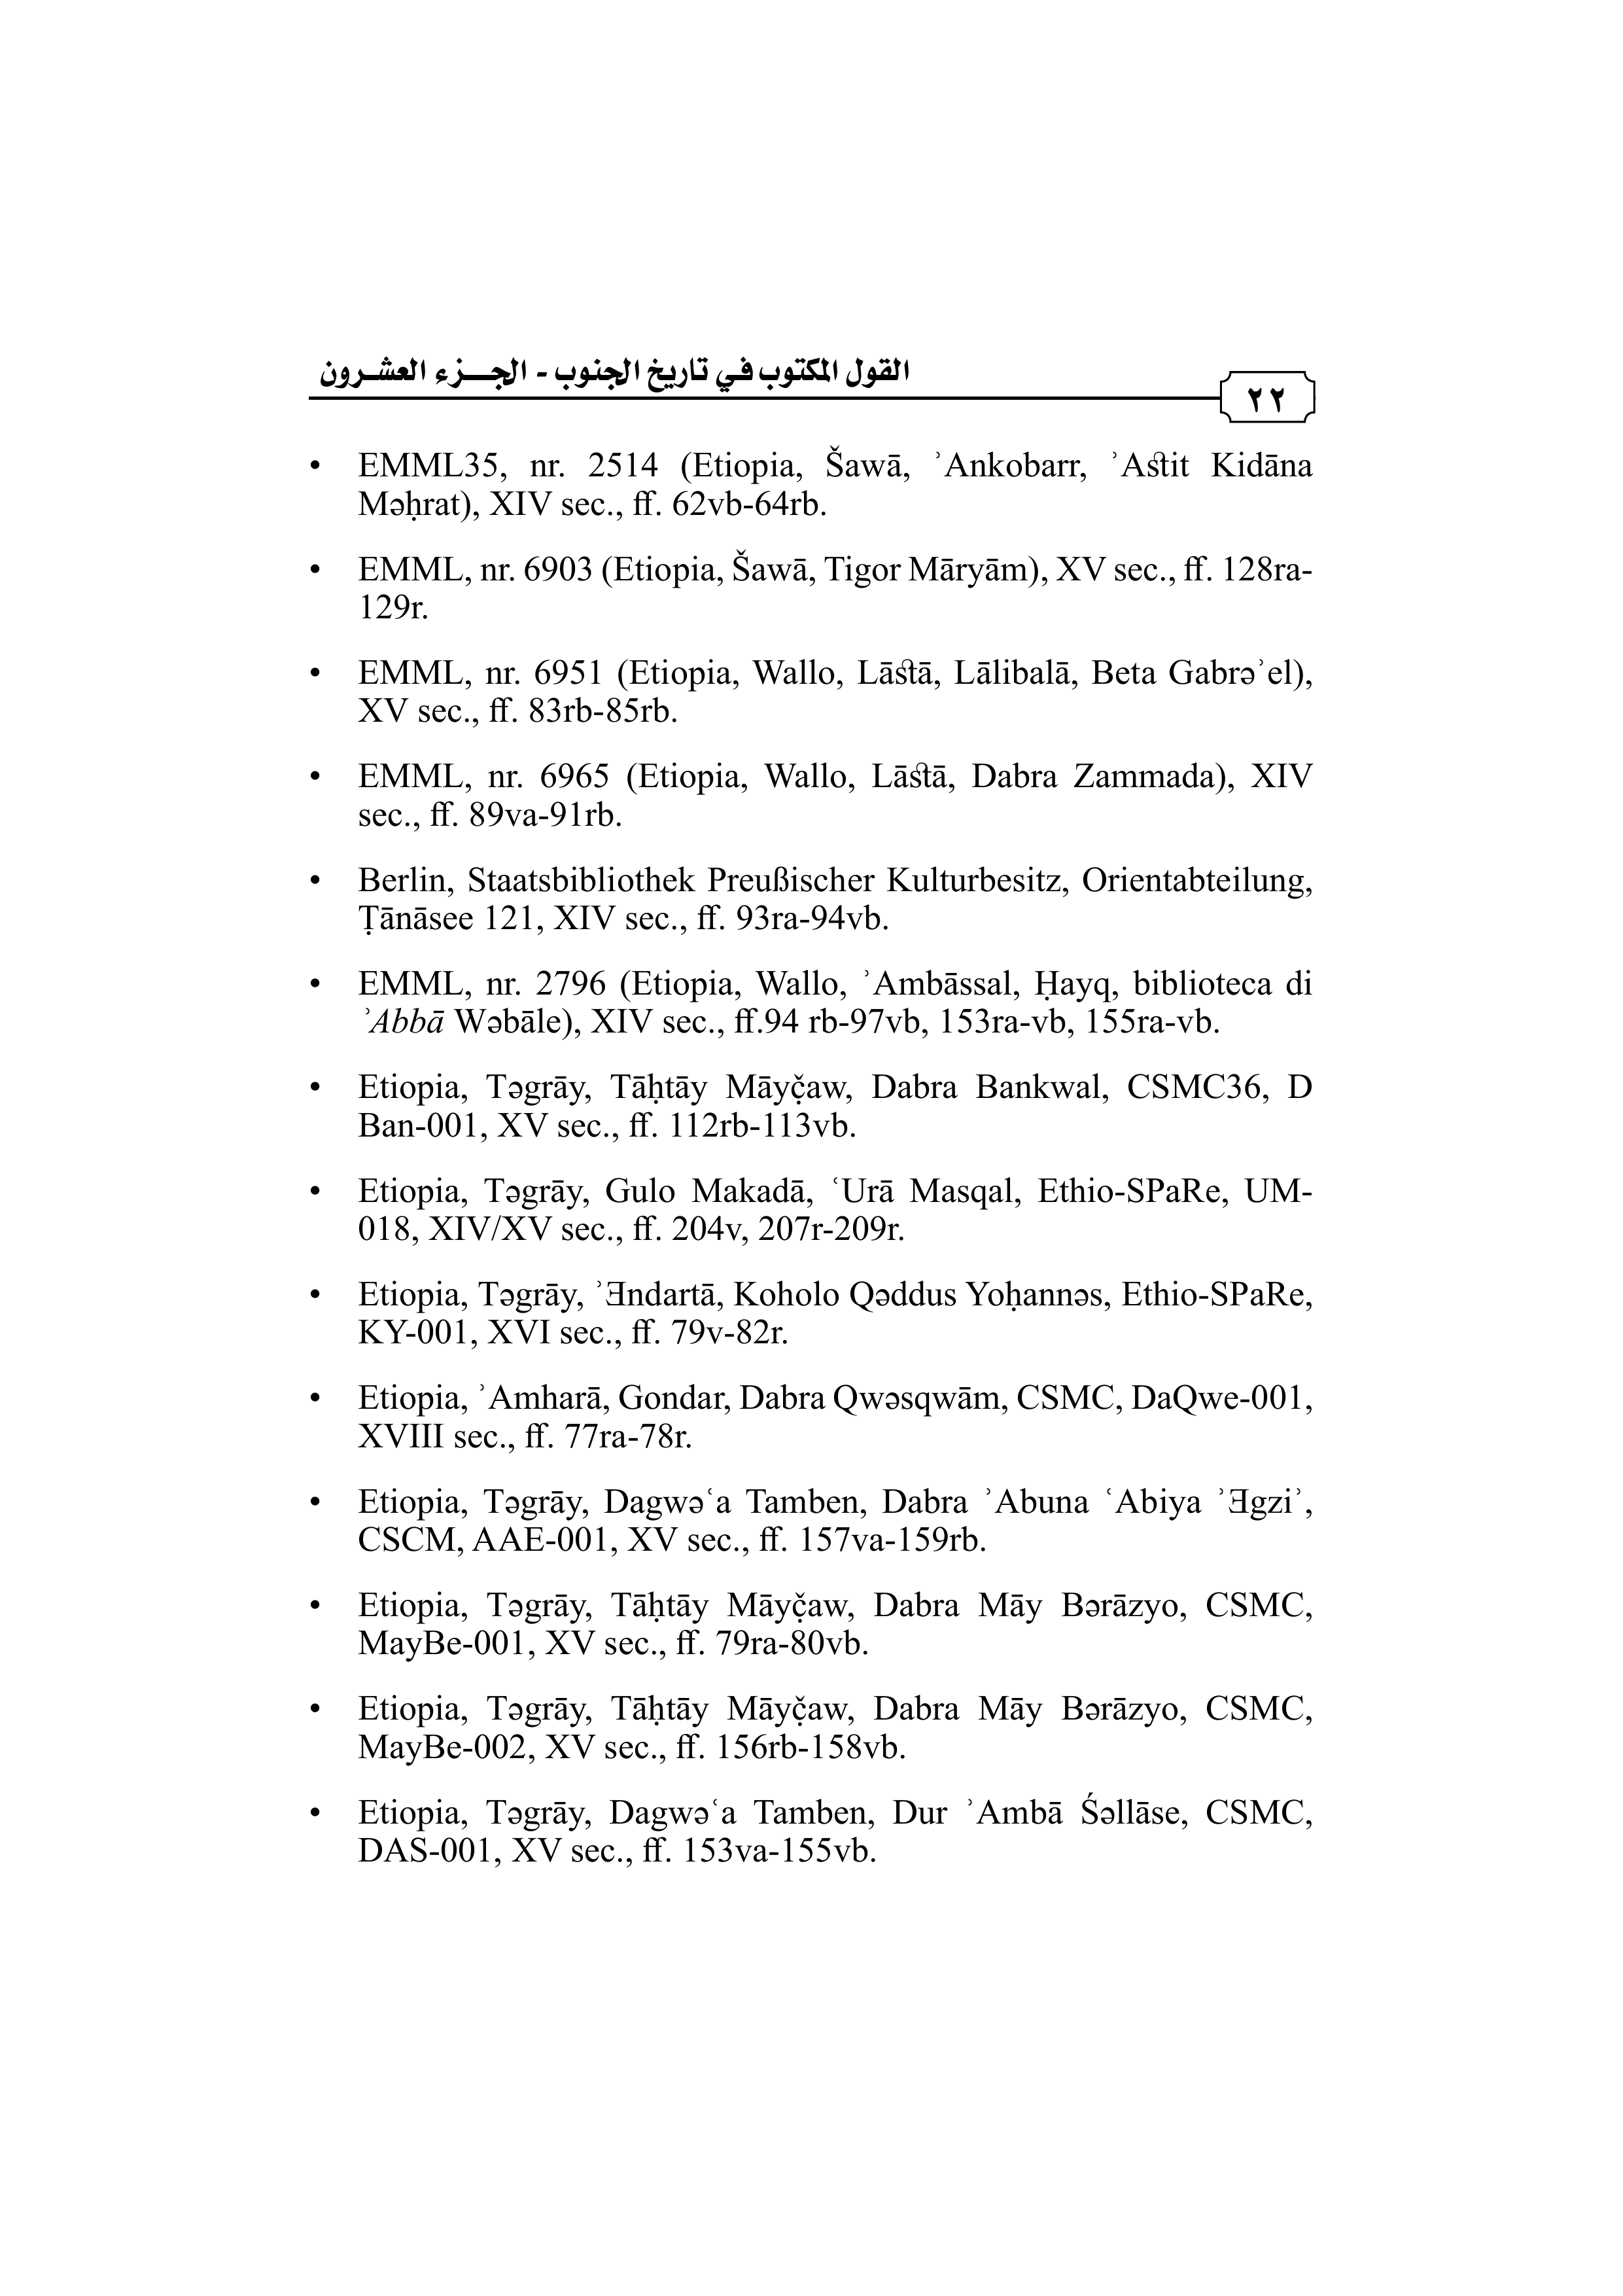 القول المكتوب في تاريخ الجنوب - الجـــزء العشـرون
٢٢
• EMML35, nr. 2514 (Etiopia, Šawā, ʾAnkobarr, ʾAstit Kidāna
Məḥrat), XIV sec., ff. 62vb-64rb.
• EMML, nr. 6903 (Etiopia, Šawā, Tigor Māryām), XV sec., ff. 128ra-
129r.
• EMML, nr. 6951 (Etiopia, Wallo, Lāstā, Lālibalā, Beta Gabrəʾel),
XV sec., ff. 83rb-85rb.
• EMML, nr. 6965 (Etiopia, Wallo, Lāstā, Dabra Zammada), XIV
sec., ff. 89va-91rb.
• Berlin, Staatsbibliothek Preußischer Kulturbesitz, Orientabteilung,
Ṭānāsee 121, XIV sec., ff. 93ra-94vb.
• EMML, nr. 2796 (Etiopia, Wallo, ʾAmbāssal, Ḥayq, biblioteca di
ʾAbbā Wəbāle), XIV sec., ff.94 rb-97vb, 153ra-vb, 155ra-vb.
• Etiopia, Təgrāy, Tāḥtāy Māyč̣aw, Dabra Bankwal, CSMC36, D
Ban-001, XV sec., ff. 112rb-113vb.
• Etiopia, Təgrāy, Gulo Makadā, ʿUrā Masqal, Ethio-SPaRe, UM-
018, XIV/XV sec., ff. 204v, 207r-209r.
• Etiopia, Təgrāy, ʾƎndartā, Koholo Qəddus Yoḥannəs, Ethio-SPaRe,
KY-001, XVI sec., ff. 79v-82r.
• Etiopia, ʾAmharā, Gondar, Dabra Qwəsqwām, CSMC, DaQwe-001,
XVIII sec., ff. 77ra-78r.
• Etiopia, Təgrāy, Dagwəʿa Tamben, Dabra ʾAbuna ʿAbiya ʾƎgziʾ,
CSCM, AAE-001, XV sec., ff. 157va-159rb.
• Etiopia, Təgrāy, Tāḥtāy Māyč̣aw, Dabra Māy Bərāzyo, CSMC,
MayBe-001, XV sec., ff. 79ra-80vb.
• Etiopia, Təgrāy, Tāḥtāy Māyč̣aw, Dabra Māy Bərāzyo, CSMC,
MayBe-002, XV sec., ff. 156rb-158vb.
• Etiopia, Təgrāy, Dagwəʿa Tamben, Dur ʾAmbā Śəllāse, CSMC,
DAS-001, XV sec., ff. 153va-155vb.